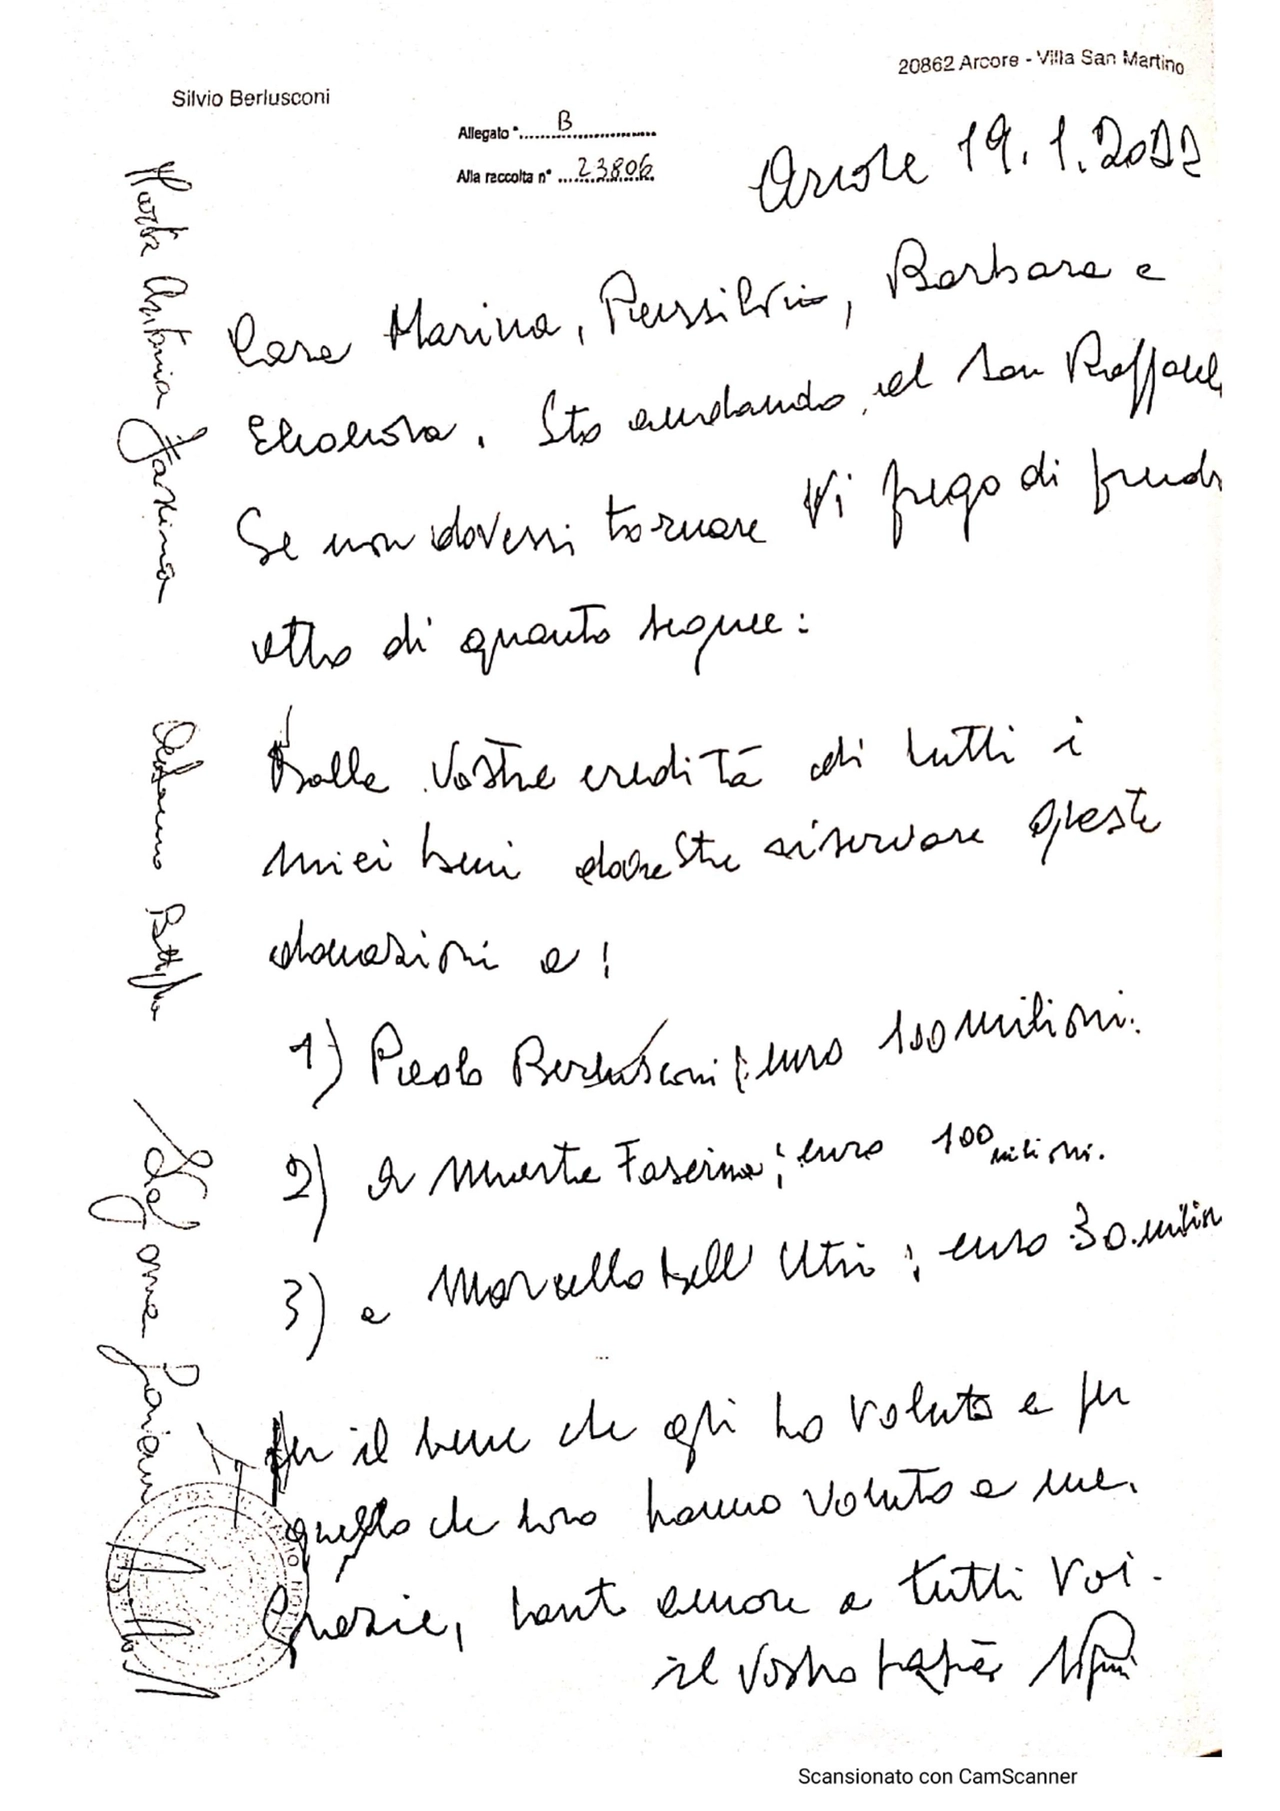 Silvio Berlusconi
20862 Arcore - Villa San Martino
Allegato "B
Alla raccolta n° 23806
Arcore 19.1.2022
Cara Marina, Piersilvio, Barbara e
Eleonora. Sto andando al San Raffaele
Se non dovessi tornare Vi prego di prende
atto di quanto segue:
Dalle Vostre eredità di tutti i
miei beni dovreste riservare queste
donazioni a:
1) Paolo Berlusconi: euro 100 milioni.
2) a Marta Fascina: euro 100 milioni.
3) a Marcello Dell'Utri: euro 30 milion
Per il bene che gli ho voluto e per
quello che loro hanno voluto a me.
Grazie, tanto amore a tutti Voi.
il Vostro papà
Marta Antonia Fascina
Scansionato con CamScanner